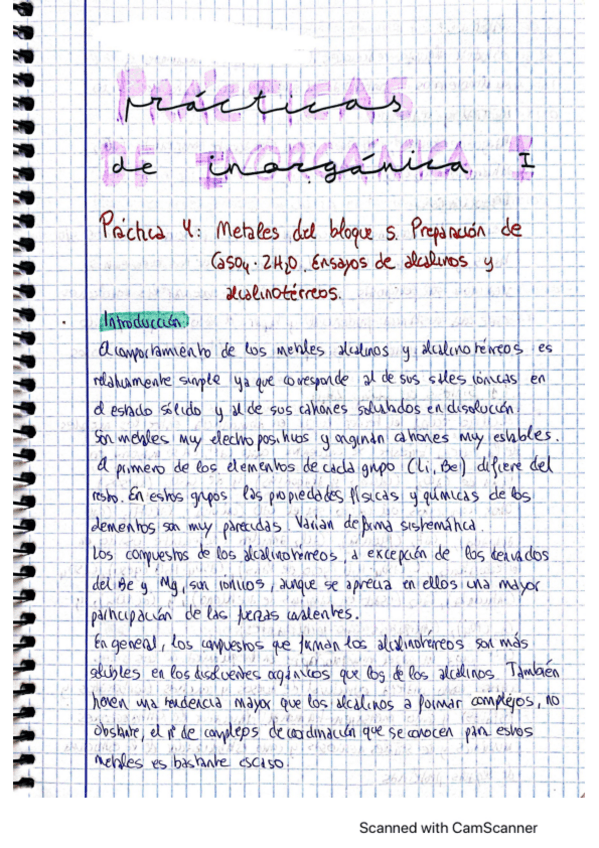 prácticas
de inorgánica I
Práctica 4: Metales del bloque s. Preparación de
CaSO4 · 2H2O. Ensayos de alcalinos y
alcalinotérreos.
Introducción
El comportamiento de los metales alcalinos y alcalinotérreos es
relativamente simple ya que corresponde al de sus sales iónicas en
el estado sólido y al de sus cationes solvatados en disolución.
Son metales muy electropositivos y originan cationes muy estables.
El primero de los elementos de cada grupo (Li, Be) difiere del
resto. En estos grupos las propiedades físicas y químicas de los
elementos son muy parecidas. Varian de forma sistemática.
Los compuestos de los alcalinotérreos, a excepción de los derivados
del Be y Mg, son iónicos, aunque se aprecia en ellos una mayor
participación de las fuerzas covalentes.
En general, los compuestos que forman los alcalinotérreos son más
solubles en los disolventes orgánicos que los de los alcalinos. También
tienen una tendencia mayor que los alcalinos a formar complejos, no
obstante, el nº de complejos de coordinación que se conocen para estos
metales es bastante escaso.
Scanned with CamScanner